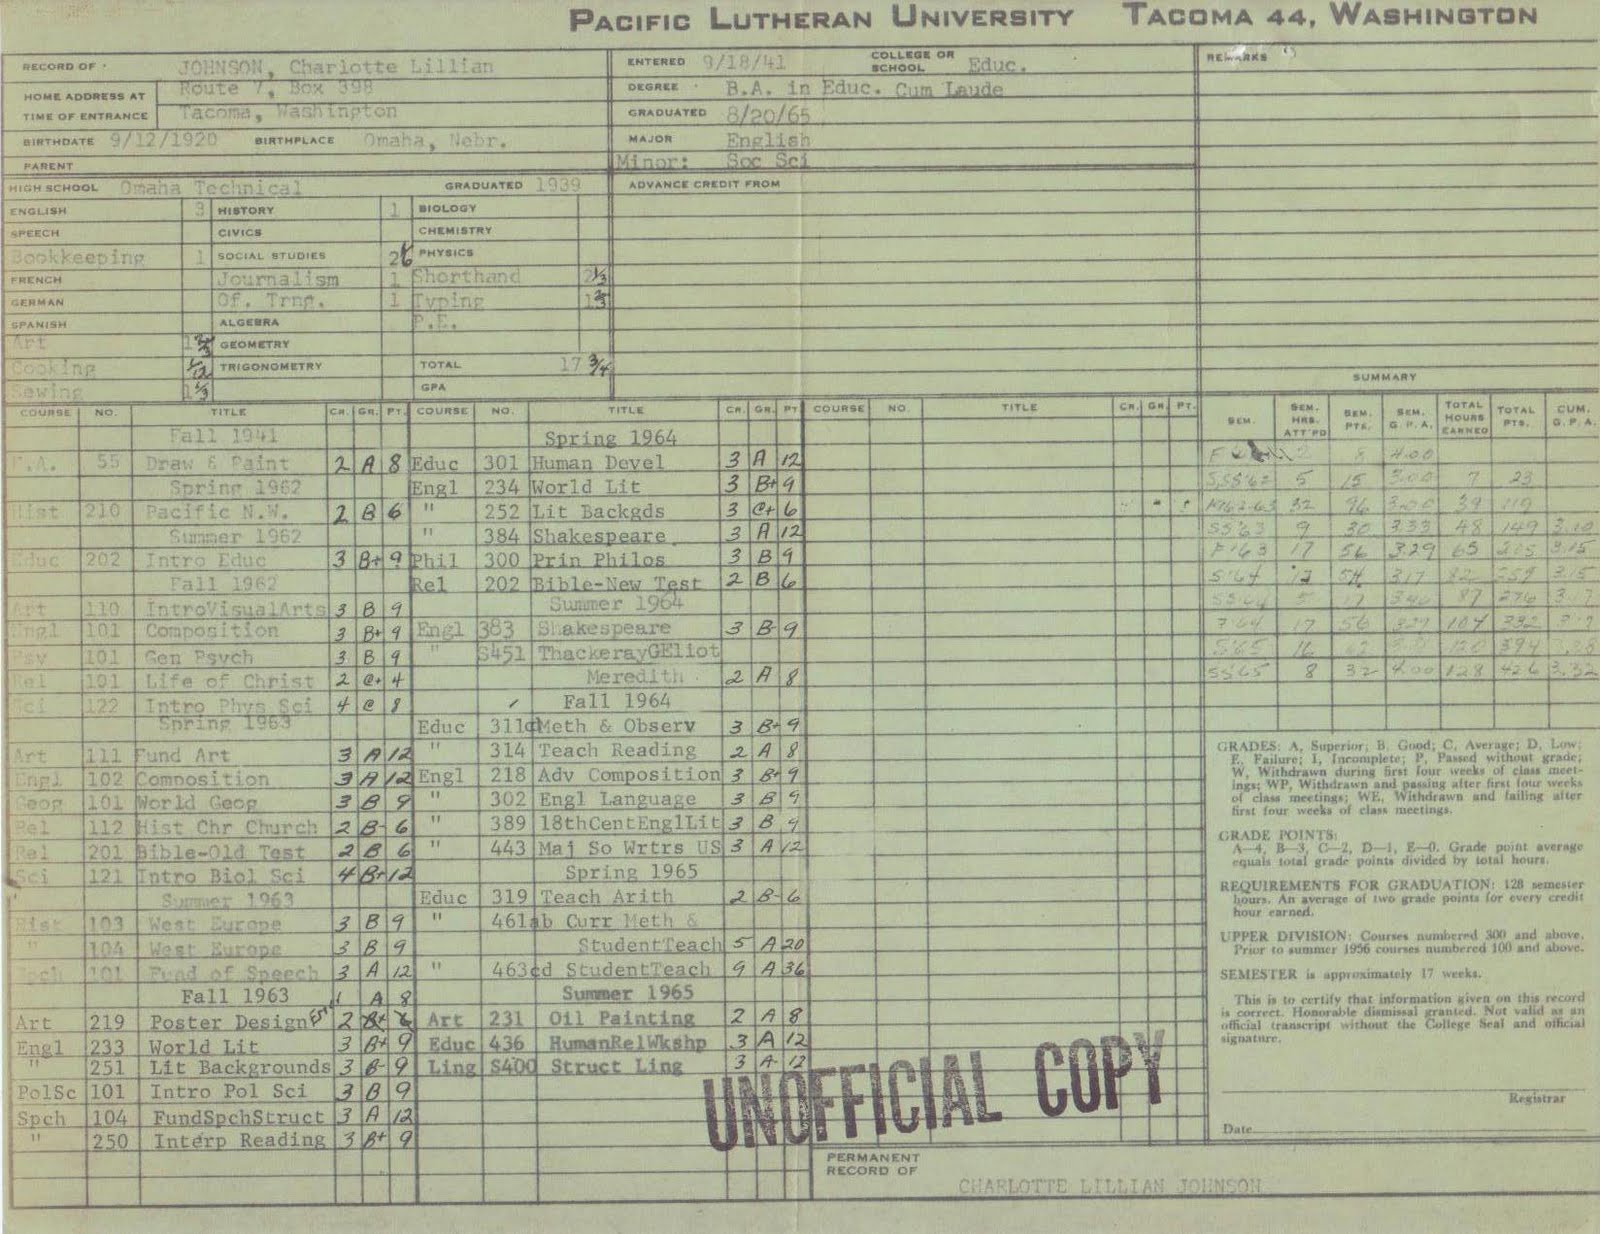 PACIFIC LUTHERAN UNIVERSITY TACOMA 44, WASHINGTON
RECORD OF JOHNSON, Charlotte Lillian
HOME ADDRESS AT TIME OF ENTRANCE Route 7, Box 398
Tacoma, Washington
BIRTHDATE 9/12/1920 BIRTHPLACE Omaha, Nebr.
PARENT
ENTERED 9/18/41 COLLEGE OR SCHOOL Educ.
DEGREE B.A. in Educ. Cum Laude
GRADUATED 8/20/65
MAJOR English
Minor: Soc Sci
REMARKS
HIGH SCHOOL Omaha Technical GRADUATED 1939
ADVANCE CREDIT FROM
ENGLISH 3 HISTORY 1 BIOLOGY
SPEECH CIVICS CHEMISTRY
Bookkeeping 1 SOCIAL STUDIES PHYSICS
FRENCH Journalism 1 Shorthand 2 1/3
GERMAN Of. Trng. 1 Typing
SPANISH ALGEBRA P.E.
Art GEOMETRY
Cooking 1/12 TRIGONOMETRY TOTAL 17 3/4
Sewing 1 1/3 GPA
COURSE NO. TITLE CR. GR. PT.
Fall 1941
F.A. 55 Draw & Paint 2 A 8
Spring 1962
Hist 210 Pacific N.W. 2 B 6
Summer 1962
Educ 202 Intro Educ 3 B+ 9
Fall 1962
Art 110 IntroVisualArts 3 B 9
Engl 101 Composition 3 B+ 9
Psy 101 Gen Psych 3 B 9
Rel 101 Life of Christ 2 C+ 4
Sci 122 Intro Phys Sci 4 C 8
Spring 1963
Art 111 Fund Art 3 A 12
Engl 102 Composition 3 A 12
Geog 101 World Geog 3 B 9
Rel 112 Hist Chr Church 2 B- 6
Rel 201 Bible-Old Test 2 B 6
Sci 121 Intro Biol Sci 4 B+ 12
Summer 1963
Hist 103 West Europe 3 B 9
" 104 West Europe 3 B 9
Spch 101 Fund of Speech 3 A 12
Fall 1963
A 8
Art 219 Poster Design 2 B+ 6
Engl 233 World Lit 3 B+ 9
" 251 Lit Backgrounds 3 B- 9
PolSc 101 Intro Pol Sci 3 B 9
Spch 104 FundSpchStruct 3 A 12
" 250 Interp Reading 3 B+ 9
COURSE NO. TITLE CR. GR. PT
Spring 1964
Educ 301 Human Devel 3 A 12
Engl 234 World Lit 3 B+ 9
" 252 Lit Backgds 3 C+ 6
" 384 Shakespeare 3 A 12
Phil 300 Prin Philos 3 B 9
Rel 202 Bible-New Test 2 B 6
Summer 1964
Engl 383 Shakespeare 3 B- 9
" S451 ThackerayGEliot
Meredith 2 A 8
Fall 1964
Educ 311c Meth & Observ 3 B+ 9
" 314 Teach Reading 2 A 8
Engl 218 Adv Composition 3 B+ 9
" 302 Engl Language 3 B 9
" 389 18thCentEnglLit 3 B 9
" 443 Maj So Wrtrs US 3 A 12
Spring 1965
Educ 319 Teach Arith 2 B- 6
" 461ab Curr Meth &
StudentTeach 5 A 20
" 463cd StudentTeach 9 A 36
Summer 1965
Art 231 Oil Painting 2 A 8
Educ 436 HumanRelWkshp 3 A 12
Ling S400 Struct Ling 3 A- 12
COURSE NO. TITLE CR. GR. PT.
SUMMARY
SEM. SEM. HRS. ATT'PD SEM. PTS. SEM. G.P.A. TOTAL HOURS EARNED TOTAL PTS. CUM. G.P.A.
2 8 4.00
SSS'62 5 15 3.00 7 23
32 96 3.00 39 119
SS'63 9 30 3.33 48 149 3.10
F'63 17 56 3.29 65 205 3.15
S'64 54 3.17 82 259 3.15
SS'64 5 17 3.40 87 276 3.17
F'64 17 56 3.29 104 332
S'65 16 120 394 3.28
SS'65 8 32 4.00 128 426 3.32
GRADES: A, Superior; B, Good; C, Average; D, Low;
E, Failure; I, Incomplete; P, Passed without grade;
W, Withdrawn during first four weeks of class meet-
ings; WP, Withdrawn and passing after first four weeks
of class meetings; WE, Withdrawn and failing after
first four weeks of class meetings.
GRADE POINTS:
A—4, B—3, C—2, D—1, E—0. Grade point average
equals total grade points divided by total hours.
REQUIREMENTS FOR GRADUATION: 128 semester
hours. An average of two grade points for every credit
hour earned.
UPPER DIVISION: Courses numbered 300 and above.
Prior to summer 1956 courses numbered 100 and above.
SEMESTER is approximately 17 weeks.
This is to certify that information given on this record
is correct. Honorable dismissal granted. Not valid as an
official transcript without the College Seal and official
signature.
Registrar
Date
UNOFFICIAL COPY
PERMANENT RECORD OF CHARLOTTE LILLIAN JOHNSON